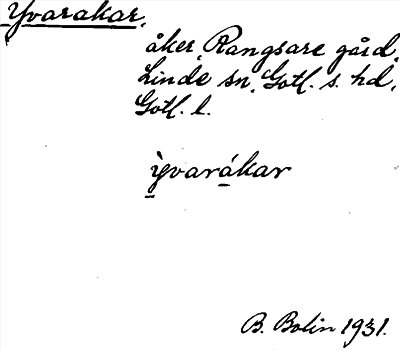 Yvarakar,
åker, Rangsare gård,
Linde sn, Gotl. s. hd,
Gotl. l.
ỳvarákar
B. Bolin 1931.